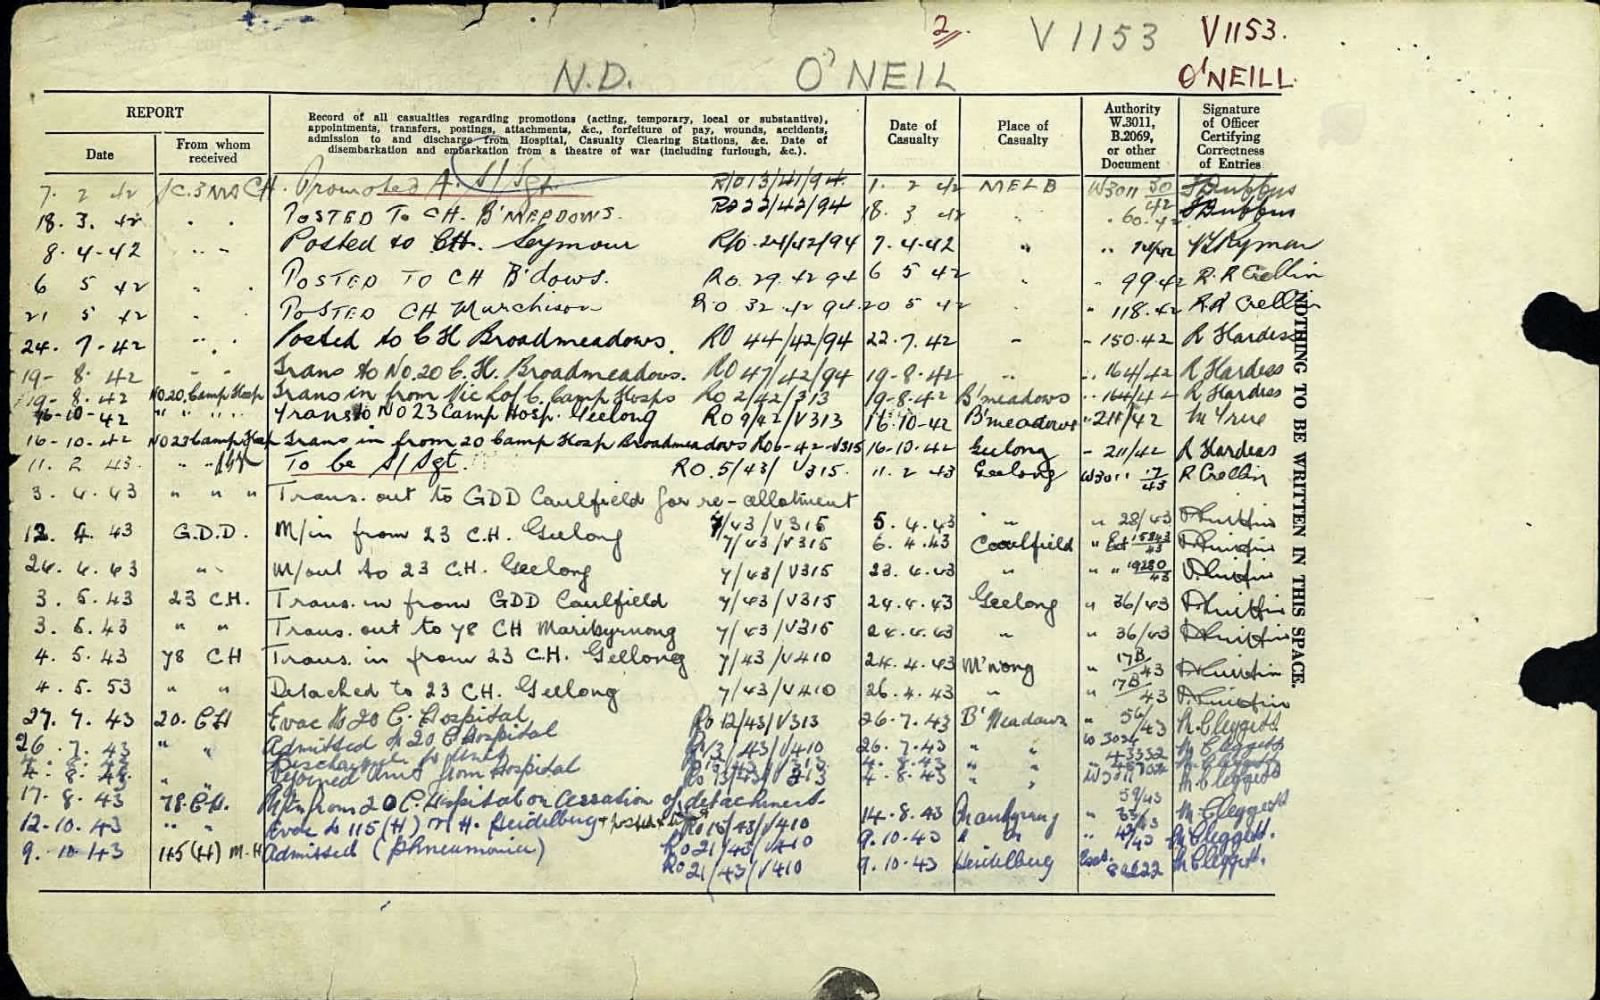 2/.
V 1153 V1153.
N.D. O'NEIL O'NEILL.
REPORT
Date
From whom received
Record of all casualties regarding promotions (acting, temporary, local or substantive),
appointments, transfers, postings, attachments, &c., forfeiture of pay, wounds, accidents,
admission to and discharge from Hospital, Casualty Clearing Stations, &c. Date of
disembarkation and embarkation from a theatre of war (including furlough, &c.).
Date of Casualty
Place of Casualty
Authority W.3011, B.2069, or other Document
Signature of Officer Certifying Correctness of Entries
7. 2 42 Promoted A. S/Sgt. R/O 13/41/94. 1. 2 42 MELB W3011 30/42
18. 3. 42 " " POSTED TO CH. B'MEADOWS. RO 22/42/94 18. 3 42 " " 60. 42
8. 4. 42 " " Posted to CH. Seymour R/O. 24/42/94 7. 4. 42 " " 74/42 Ryman
6 5 42 " " POSTED TO CH B'dows. RO. 29. 42 94 6 5 42 " " 99 42 R. R Crellin
21 5 42 " " POSTED CH Murchison RO 32. 42 94 20 5 42 " " 118. 42 R R Crellin
24. 7. 42 " " Posted to C H Broadmeadows. RO 44/42/94 22. 7. 42 " " 150. 42 R Hardess
19. 8. 42 " " Trans to No. 20 C. H. Broadmeadows. RO 47/42/94 19-8-42 " " 164/42 R Hardess
19-8. 42 NO20. Camp Hosp Trans in from Vic L of C. Camp Hosps RO 2/42/313 19-8-42 B'meadows " 164/42 R Hardess
16-10-42 " " " " Trans to NO 23 Camp Hosp. Geelong RO 9/42/V313 16-10-42 B'meadows " 211/42
16-10-42 NO23 Camp Hosp Trans in from 20 Camp Hosp Broadmeadows RO6-42-V315 16-10-42 Geelong " 211/42 R Hardess
11. 2 43. " " To be S/Sgt. RO. 5/43/ V315. 11. 2 43 Geelong W3011 17/43 R Crellin
3. 4. 43 " " " Trans. out to GDD Caulfield for re-allotment
7/43/V315 5. 4. 43 " " 28/43
12. 4. 43 G.D.D. M/in from 23 C.H. Geelong 7/43/V315 6. 4. 43 Caulfield "
24. 4. 43 " " M/out to 23 C.H. Geelong 7/43/V315 23. 4. 43 " " " 19280/43
3. 5. 43 23 C.H. Trans. in from GDD Caulfield 7/43/V315 24. 4. 43 Geelong " 36/43
3. 5. 43 " " Trans. out to 78 CH Maribyrnong 7/43/V315 24. 4. 43 " " 36/43
4. 5. 43 78 CH Trans. in from 23 C.H. Geelong 7/43/V410 24. 4. 43 M'nong " 17B/43
4. 5. 53 " " Detached to 23 C.H. Geelong 7/43/V410 26. 4. 43 " " 17B/43
27. 7. 43 20. CH Evac to 20 C. Hospital RO 12/43/V313 26. 7. 43 B'Meadows " 56/43 M Cleggett
26. 7. 43 " " Admitted to 20 C Hospital /43/V410 26. 7. 43 " " 43332 M Cleggett
Discharged to Unit 4. 8. 43 " " M Cleggett
4. 8. 43 " " Rejoined Unit from Hospital RO 13/43/V313 4. 8. 43 " " W3011 59/43 M Cleggett
17. 8. 43 78. CH. M/in from 20 C. Hospital on Cessation of detachment. 14. 8. 43 " 33/43 M Cleggett
12-10. 43 " " Evac to 115 (H) M. H. Heidelberg + RO 15/43/V410 9. 10. 43 " " " 42/43 M Cleggett.
9. 10. 43 115 (H) M. H Admitted (Phneumonia) RO 21/43/V410
RO 21/43/V410 9. 10. 43 Heidelberg M Cleggett.
NOTHING TO BE WRITTEN IN THIS SPACE.